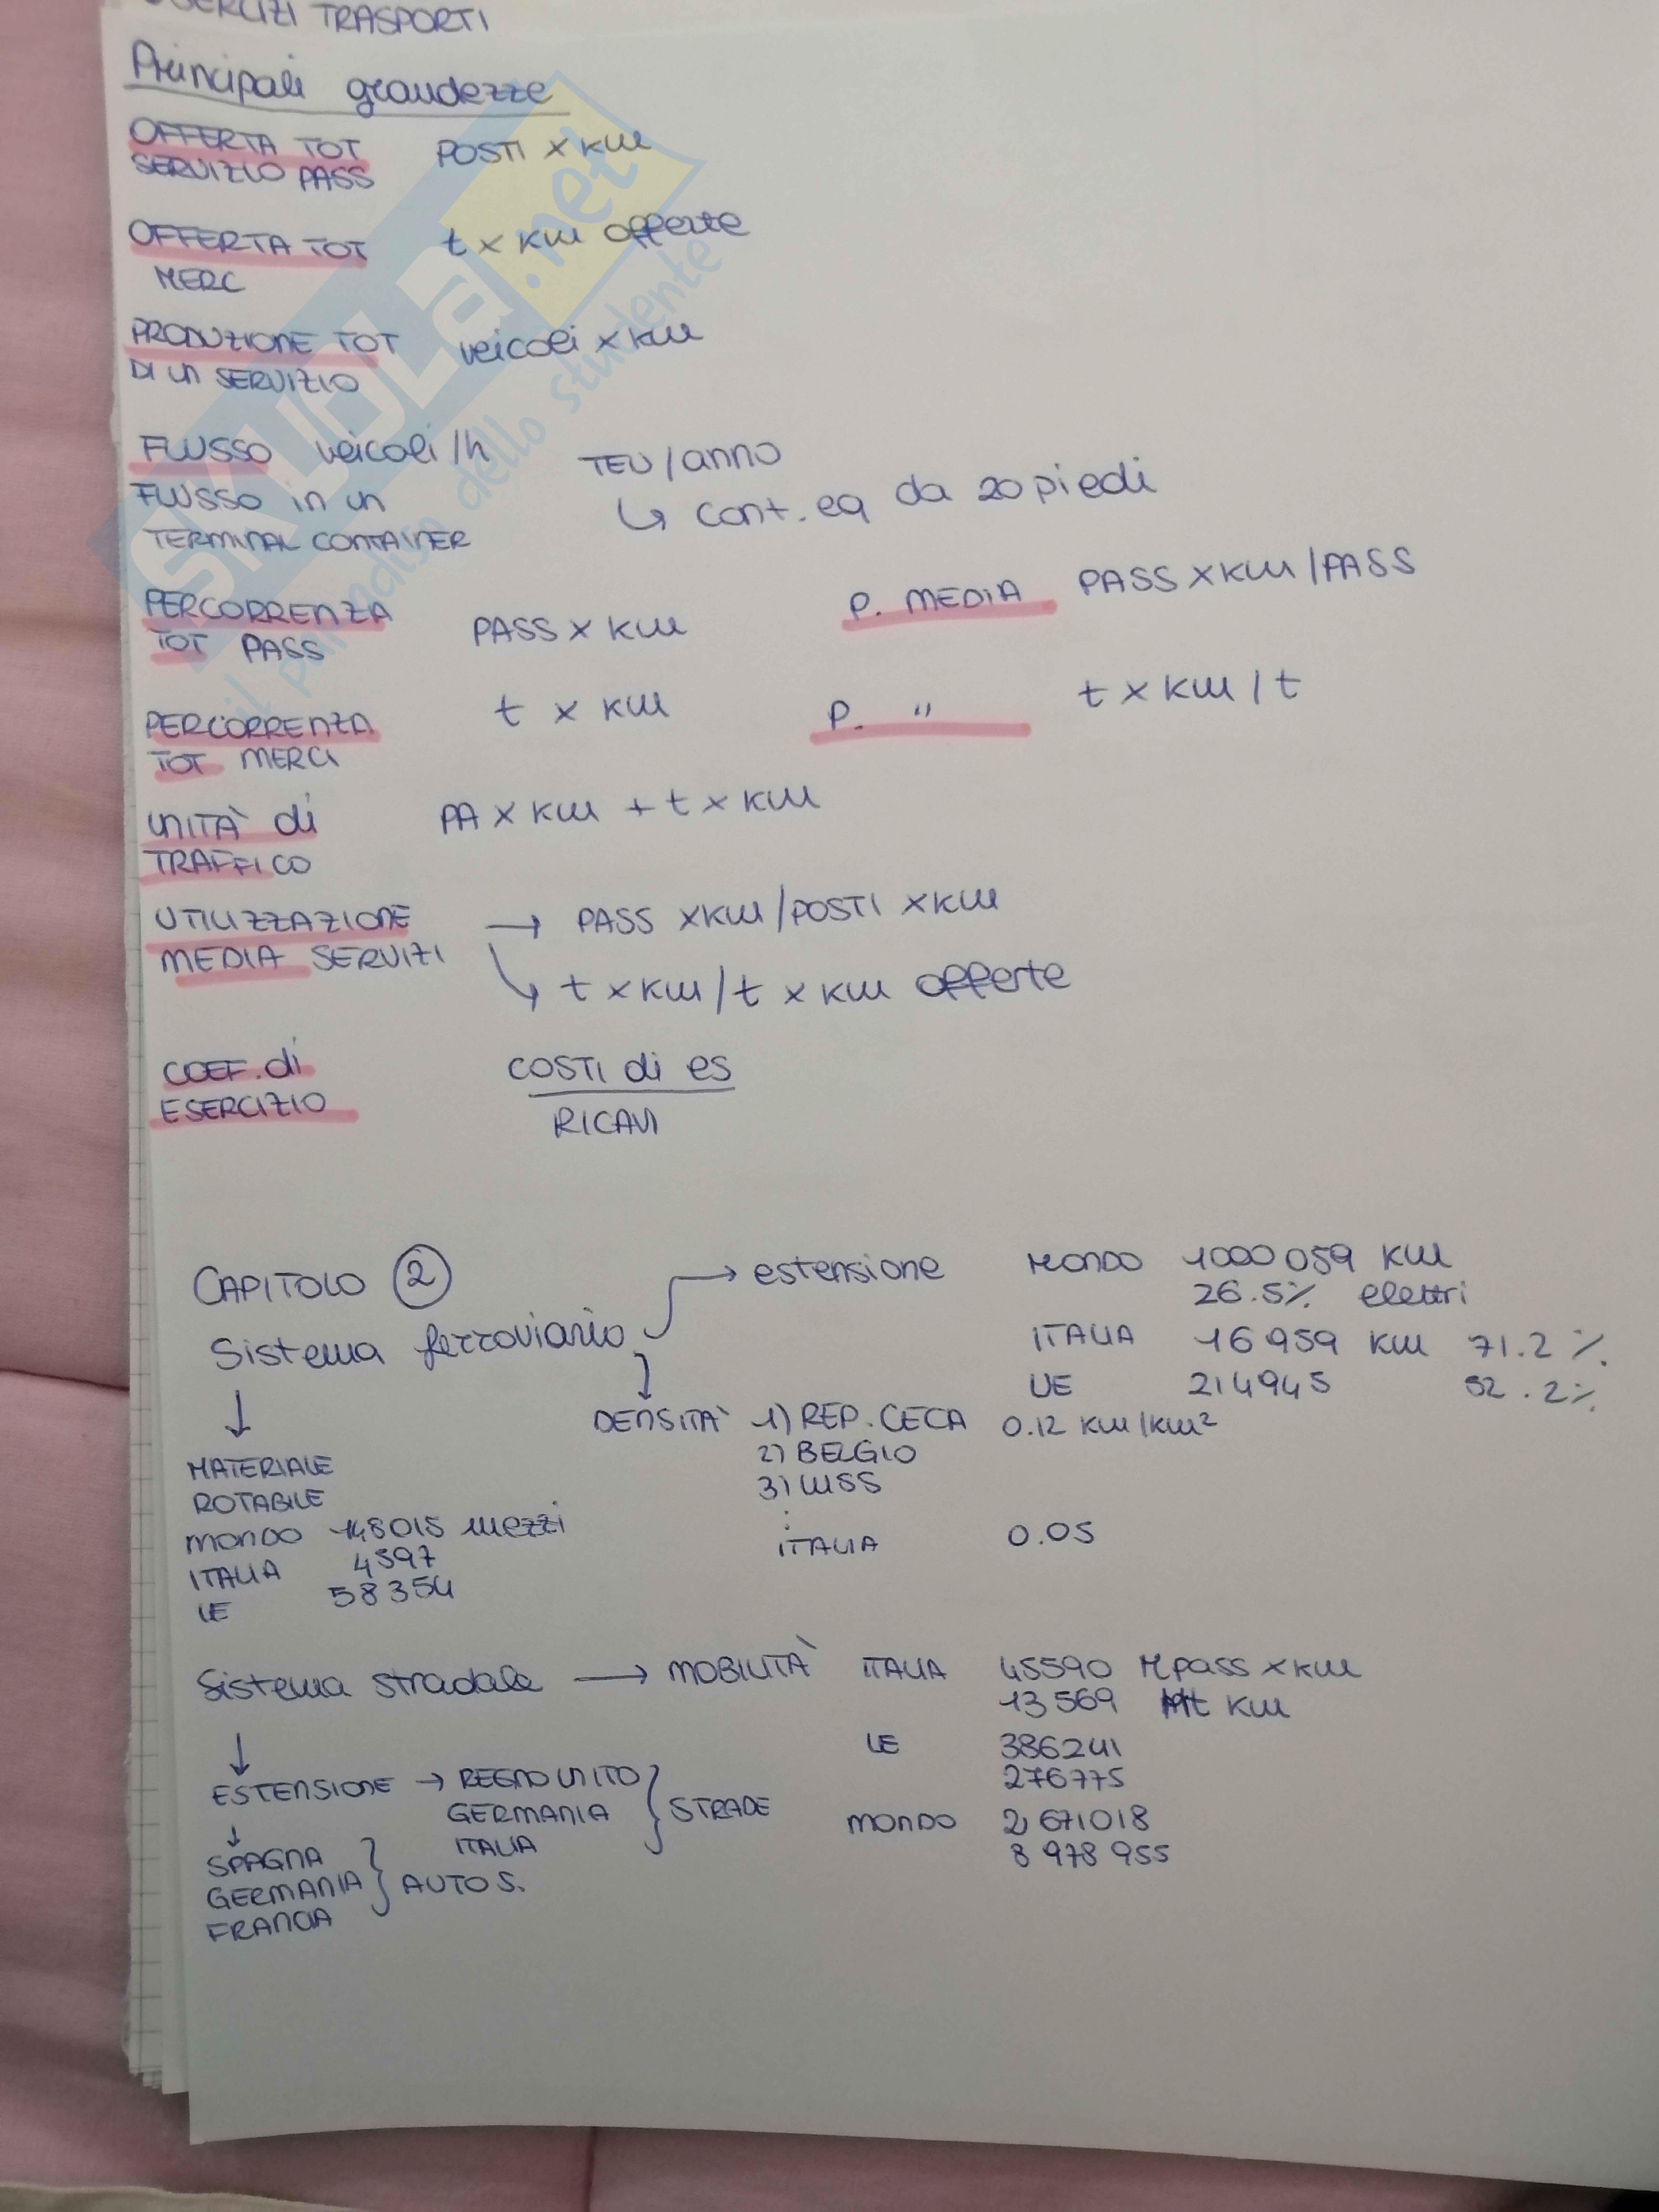 ESERCIZI TRASPORTI
Principali grandezze
OFFERTA TOT POSTI x KM
SERVIZIO PASS
OFFERTA TOT t x KM offerte
MERC
PRODUZIONE TOT veicoli x KM
DI UN SERVIZIO
FLUSSO veicoli/h
FLUSSO in un TEU/anno
TERMINAL CONTAINER ↳ cont. eq da 20 piedi
PERCORRENZA PASS x KM P. MEDIA PASS x KM/PASS
TOT PASS
PERCORRENZA t x KM P. " t x KM/t
TOT MERCI
UNITÀ di PA x KM + t x KM
TRAFFICO
UTILIZZAZIONE → PASS x KM/POSTI x KM
MEDIA SERVIZI ↘ t x KM/t x KM offerte
COEF. di COSTI di es
ESERCIZIO RICAVI
CAPITOLO 2 → estensione MONDO 1000 059 KM
26.5% elettri
Sistema ferroviario ITALIA 16 959 KM 71.2%
UE 214945 52.2%
↓ DENSITÀ 1) REP. CECA 0.12 KM/KM²
MATERIALE 2) BELGIO
ROTABILE 3) LUSS
MONDO 148015 mezzi :
ITALIA 4597 ITALIA 0.05
UE 58354
Sistema stradale → MOBILITÀ ITALIA 45590 Mpass x KM
13 569 Mt KM
↓ UE 386241
ESTENSIONE → REGNO UNITO 276775
↓ GERMANIA } STRADE MONDO 2 671018
SPAGNA ITALIA 8 978 955
GERMANIA } AUTO S.
FRANCIA
SKUOLA.net
il paradiso dello studente